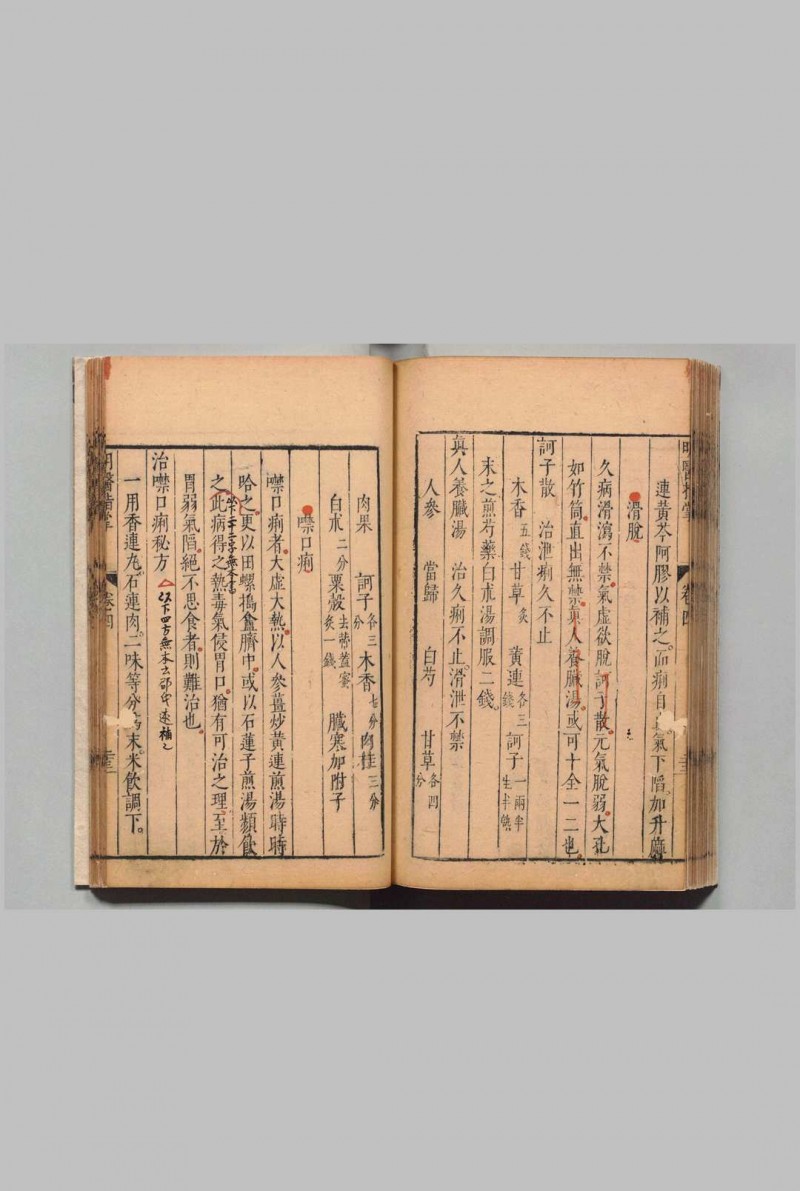 連黃芩阿膠以補之。而痢自氣下陷。加升麻
滑脫
久病滑瀉不禁。氣虛欲脫訶子散。元氣脫弱。大孔
如竹筒。直出無禁。真人養臟湯。或可十全一二也。
訶子散　治泄痢久不止
木香五錢　甘草炙　黃連各三錢　訶子一兩半生半煨
末之煎芍藥白朮湯調服二錢。
真人養臟湯　治久痢不止。滑泄不禁
人參　當歸　白芍　甘草各四分
肉果　訶子各三分　木香七分　肉桂三分
白朮二分　粟殼去蒂蓋蜜炙一錢　臟寒加附子
噤口痢
噤口痢者。大虛大熱。以人參薑炒黃連煎湯時時
哈之。更以田螺搗盦臍中。或以石蓮子煎湯頻飲
之。此病得之熱毒氣侵胃口。猶有可治之理。至於
胃弱氣陷。絕不思食者。則難治也。
治噤口痢秘方
以下四方無本
一用香連丸。石連肉。二味等分為末。米飲調下。
卷四
卷四